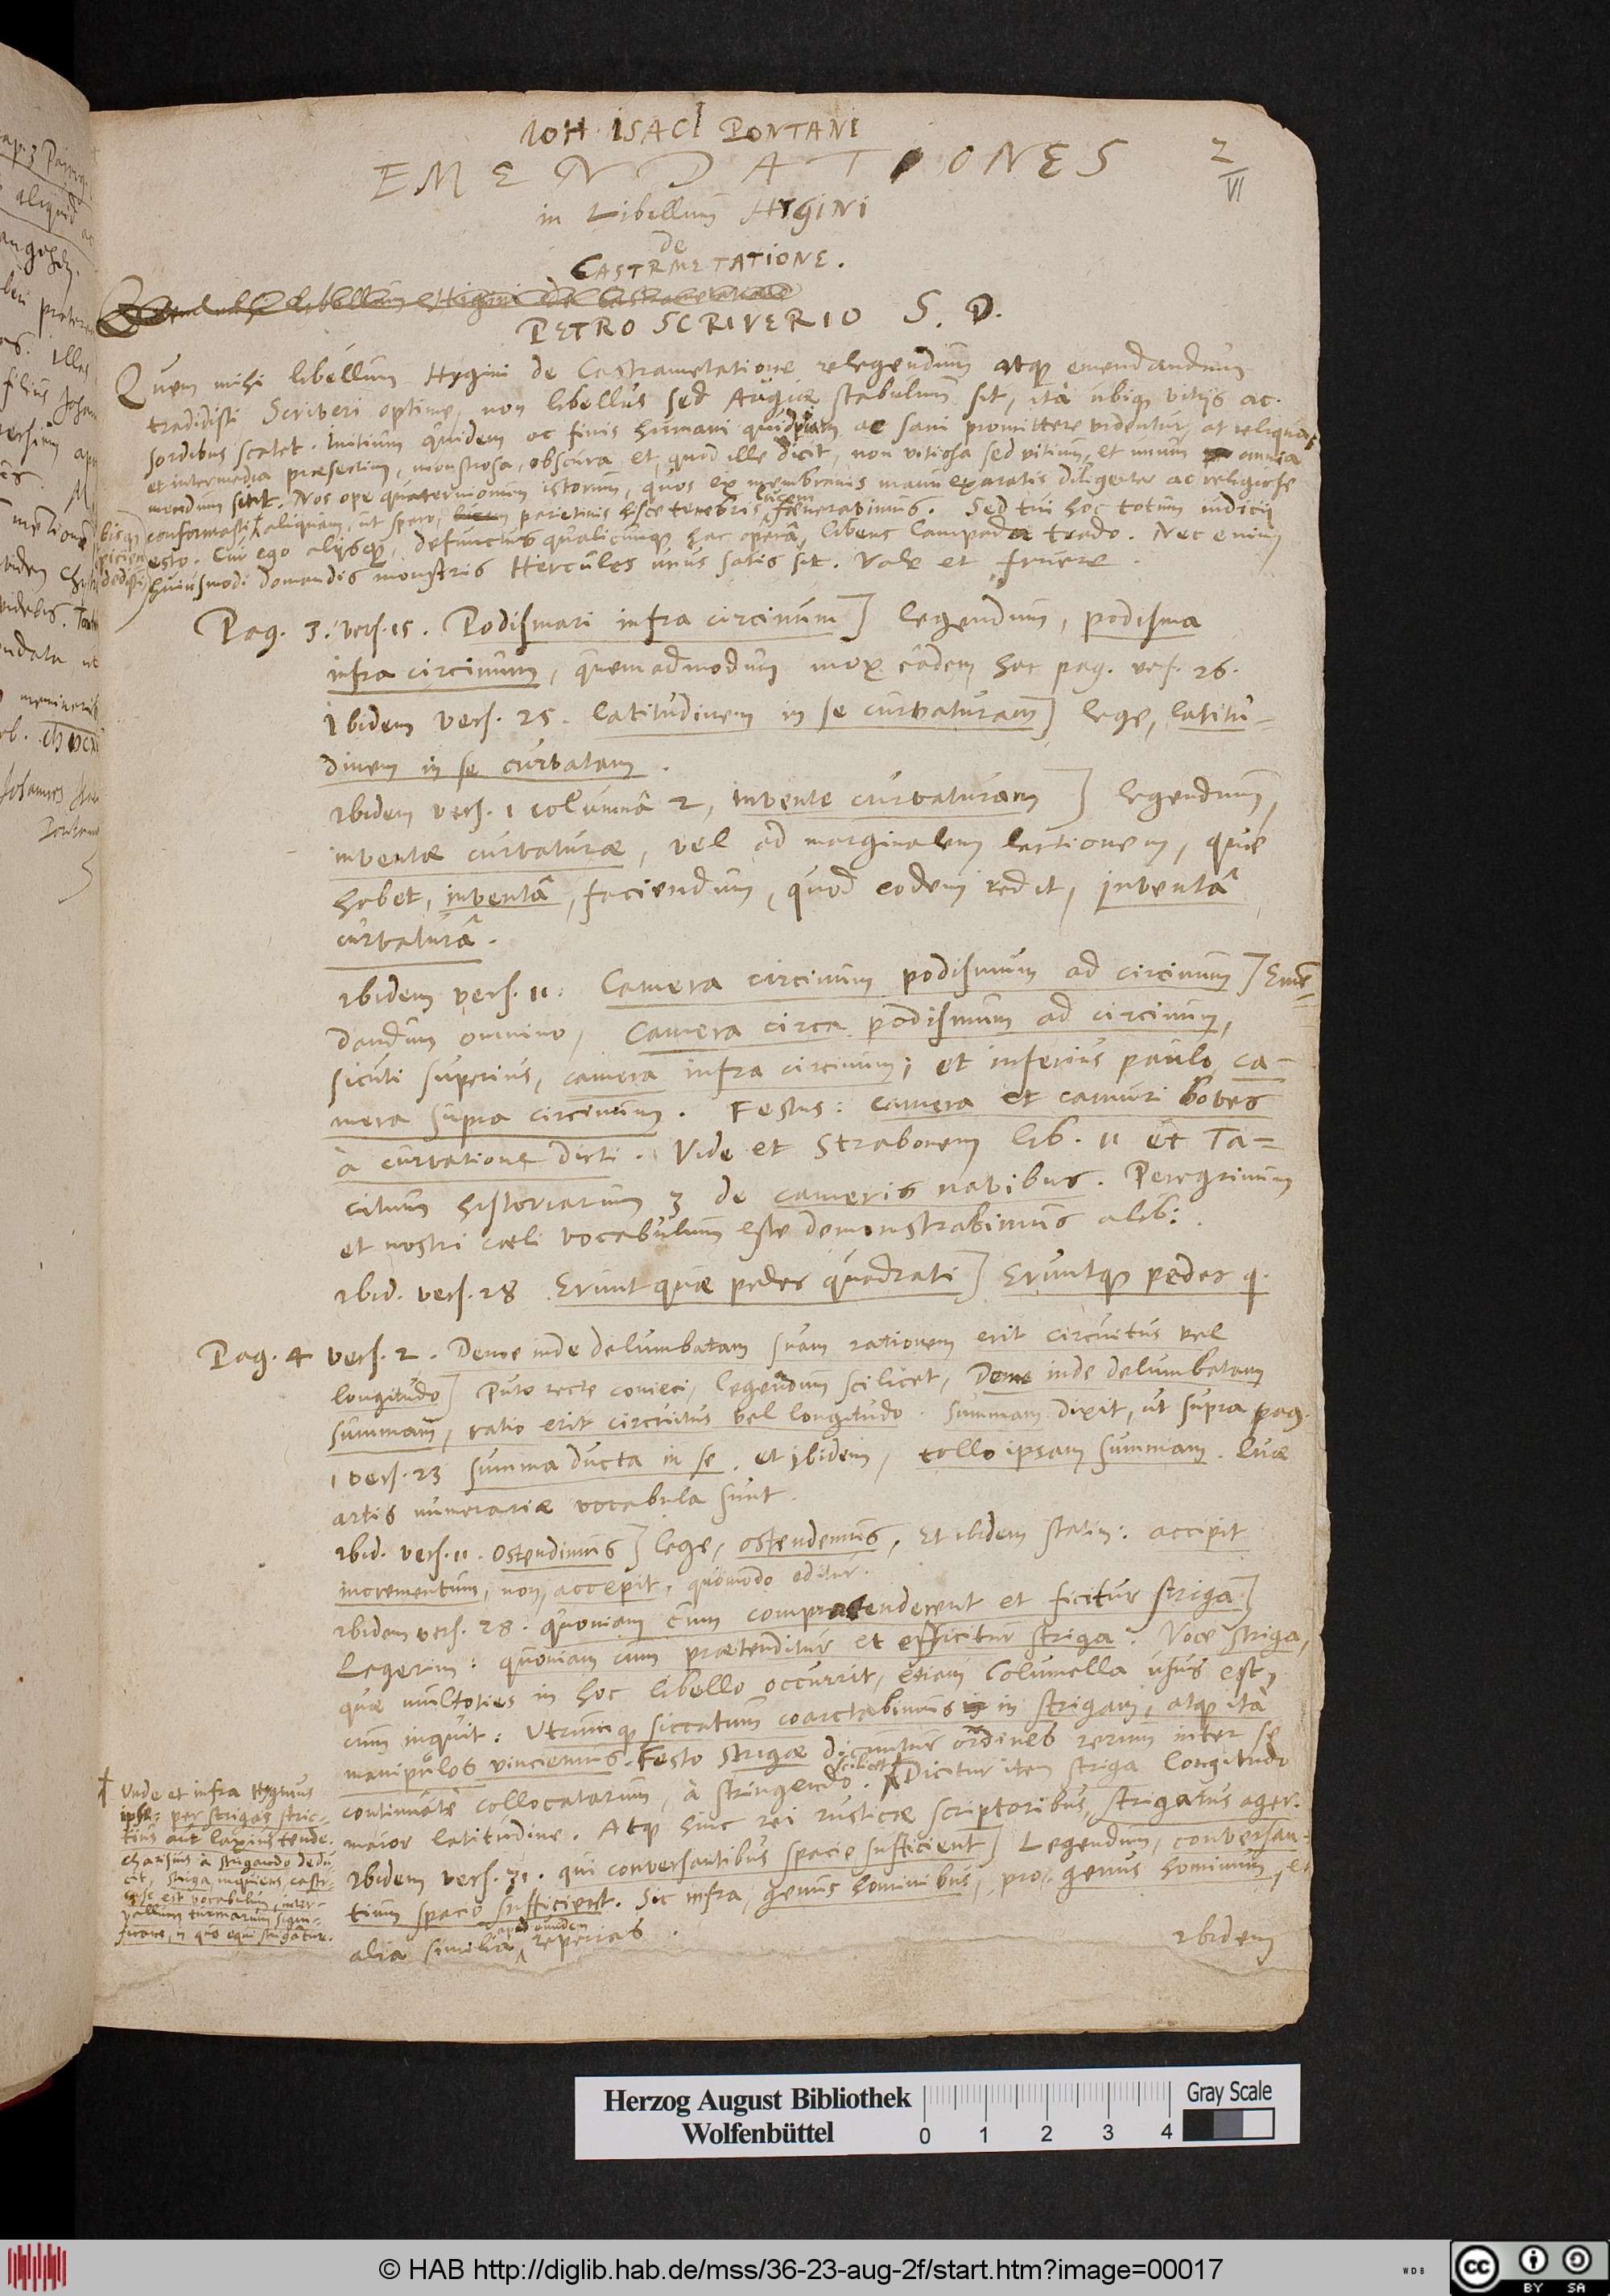 IOH. ISACI PONTANI
EMENDATIONES
2
VI
in Libellum HYGINI
de
CASTRMETATIONE.
PETRO SCRIVERIO S. D.
Quem mihi libellum Hygini de Castrametatione relegendum atq emendandum
tradidisti Scriveri optime, non libellus sed Augiae stabulum sit, ità ubiq vitijs ac
sordibus scatet. Initium quidem ac finis humani quidpiam ac sani promittere videntur, at reliqua
et intermedia praesertim, monstrosa, obscura et, quod ille dicit, non vitiosa sed vitium, et unum omnia
mendum Nos ope quaternionum istorum, quos ex membranis manu exaratis diligenter ac religiose
conformasti, aliquam, ut spero, parietinis hisce tenebris lucem faenerabimus. Sed tui hoc totum indicij
esto. Cui ego alijsq, defunctus qualicunq hac operâ, libens lampada trado. Nec enim
huiusmodi domandis monstris Hercules unus satis sit. Vale et fruere.
Pag. 3. vers. 15. Podismari infra circinum] legendum, podisma
infra circinum, quemadmodum mox eâdem hac pag. vers. 26.
Ibidem vers. 25. latitudinem in se curvaturam] lege, latitu-
dinem in se curvatam.
Ibidem vers. 1 columnâ 2, invente curvaturam] legendum,
inventae curvaturae, vel ad marginalem lectionem, quae
habet, inventâ, faciendum, quod eodem redit, inventâ
curvaturâ.
Ibidem vers. 11: Camera circinum podismum ad circinum] Emē-
dandum omnino, Camera circa podismum ad circinum,
sicuti superius, camera infra circinum; et inferius paulo ca-
mera supra circinum. Festus: camera et camuri boves
à curvatione dicti. Vide et Strabonem lib. 11 et Ta=
citum historiarum 3 de cameris navibus. Peregrinum
et nostri caeli vocabulum esse demonstrabimus alibi.
Ibid. vers. 28 Erunt quae pedes quadrati] Eruntq pedes q.
Pag. 4 vers. 2. Deme inde delumbatam suam rationem erit circuitus vel
longitudo] Puto recte conieci, legendum scilicet, Deme inde delumbatam
summam, ratio erit circuitus vel longitudo. Summam dixit, ut supra pag.
1 vers. 23 summa ducta in se. et ibidem, tollo ipsam summam. Quae
artis numerariae vocabula sunt.
Ibid. vers. 11. Ostendimus] lege, ostendemus. Et ibidem statim: accipit
incrementum, non, accepit, quomodo editur.
Ibidem vers. 28. quoniam cum compraetenderent et ficitur striga]
Legerim: quoniam cum praetenditur et efficitur striga. Voce striga,
quae multoties in hoc libello occurrit, etiam Columella usus est,
cum inquit: Utrumq siccatum coarctabimus in strigam, atq ità
manipulos vinciemus. Festo strigae dicuntur ordines rerum inter se
continuate collocatarum, à stringendo scilicet. Dicitur item striga longitudo
maior latitudine. Atq hinc rei rusticae scriptoribus, strigatus ager.
Ibidem vers. 31. qui conversantibus spacio sufficient] Legendum, conversan-
tium spacio sufficient. Sic infra, genus hominibus, pro, genus hominum, et
alia similia apud eundem reperias.
Ibidem
† Unde et infra Hyginus
ipse: per strigas stric-
tius aut laxius tende.
Charisius à strigando dedu-
cit, striga, inquiens, castr-
ense est vocabulum, inter-
vallum turmarum signi-
ficans, in quo equi strigātur.
Herzog August Bibliothek
Wolfenbüttel
0 1 2 3 4
Gray Scale
© HAB http://diglib.hab.de/mss/36-23-aug-2f/start.htm?image=00017
WDB
cc
BY SA